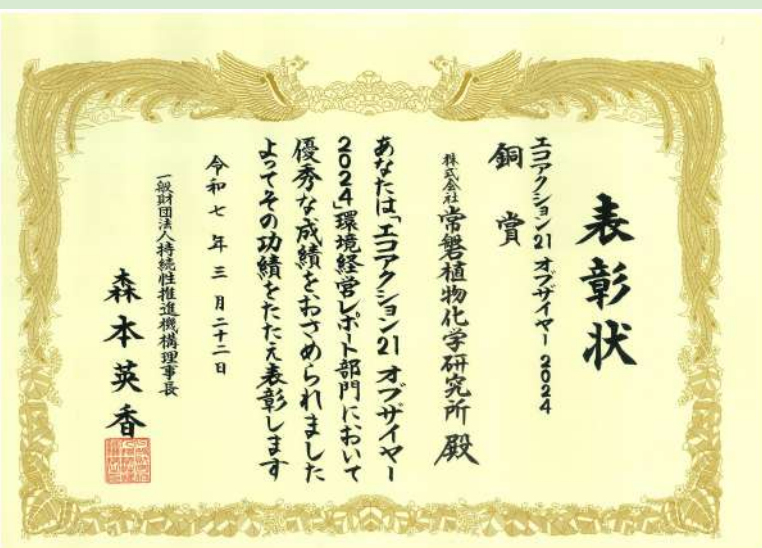 表彰状
エコアクション21 オブザイヤー 2024
銅賞
株式会社 常磐植物化学研究所 殿
あなたは「エコアクション21 オブザイヤー
2024」環境経営レポート部門において
優秀な成績をおさめられました
よってその功績をたたえ表彰します
令和七年三月二十二日
一般財団法人持続性推進機構理事長
森本英香